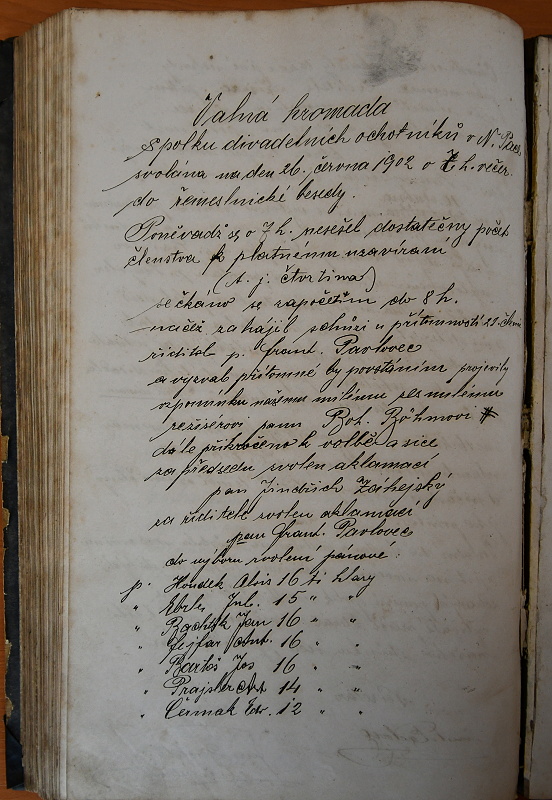 Valná hromada
spolku divadelních ochotníků v N. Pace
svolána na den 26. června 1902 o 7 h. večer.
do řemeslnické besedy.
Poněvadž se o 7 h. nesešel dostatečný počet
členstva k platnému uzavírání
(t. j. čtvrtina)
sečkáno se započetím do 8 h.
načež zahájil schůzi u přítomnosti 21 členů
řiditel p. Frant. Pavlovec
a vyzval přítomné by povstáním projevily
vzpomínku našemu milému zesnulému
režisérovi panu Boh. Böhmovi
dále přikročeno k volbě a sice
za předsedu zvolen aklamací
pan Jindřich Záhejský
za řiditele zvolen aklamací
pan Frant. Pavlovec
do výboru zvoleni pánové:
p. Houdek Alois 16 ti hlasy
" Ebrle Jul. 15 " "
" Jan 16 " "
" Fejfar Ant. 16 " "
" Bartoš Jos 16 " "
" Prajsler Ant. 14 " "
" Čermák Edv. 12 " "